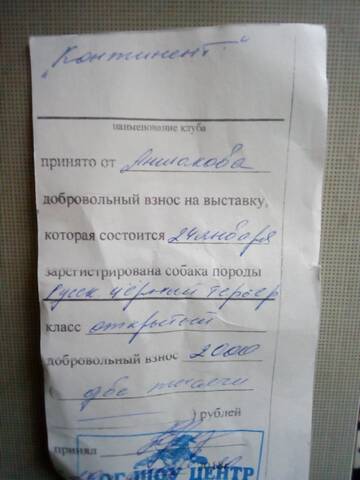 "Континент"
наименование клуба
принято от Аншакова
добровольный взнос на выставку,
которая состоится 24 января
зарегистрирована собака породы
русск чёрный терьер
класс открытый
добровольный взнос 2000
( две тысячи
) рублей
принял
ДОГ-ШОУ ЦЕНТР